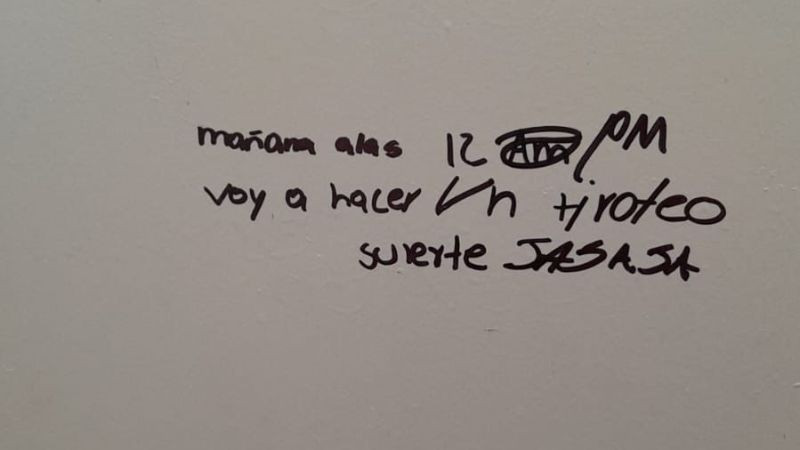 mañana alas 12 AM PM
voy a hacer Un tiroteo
suerte JASASA